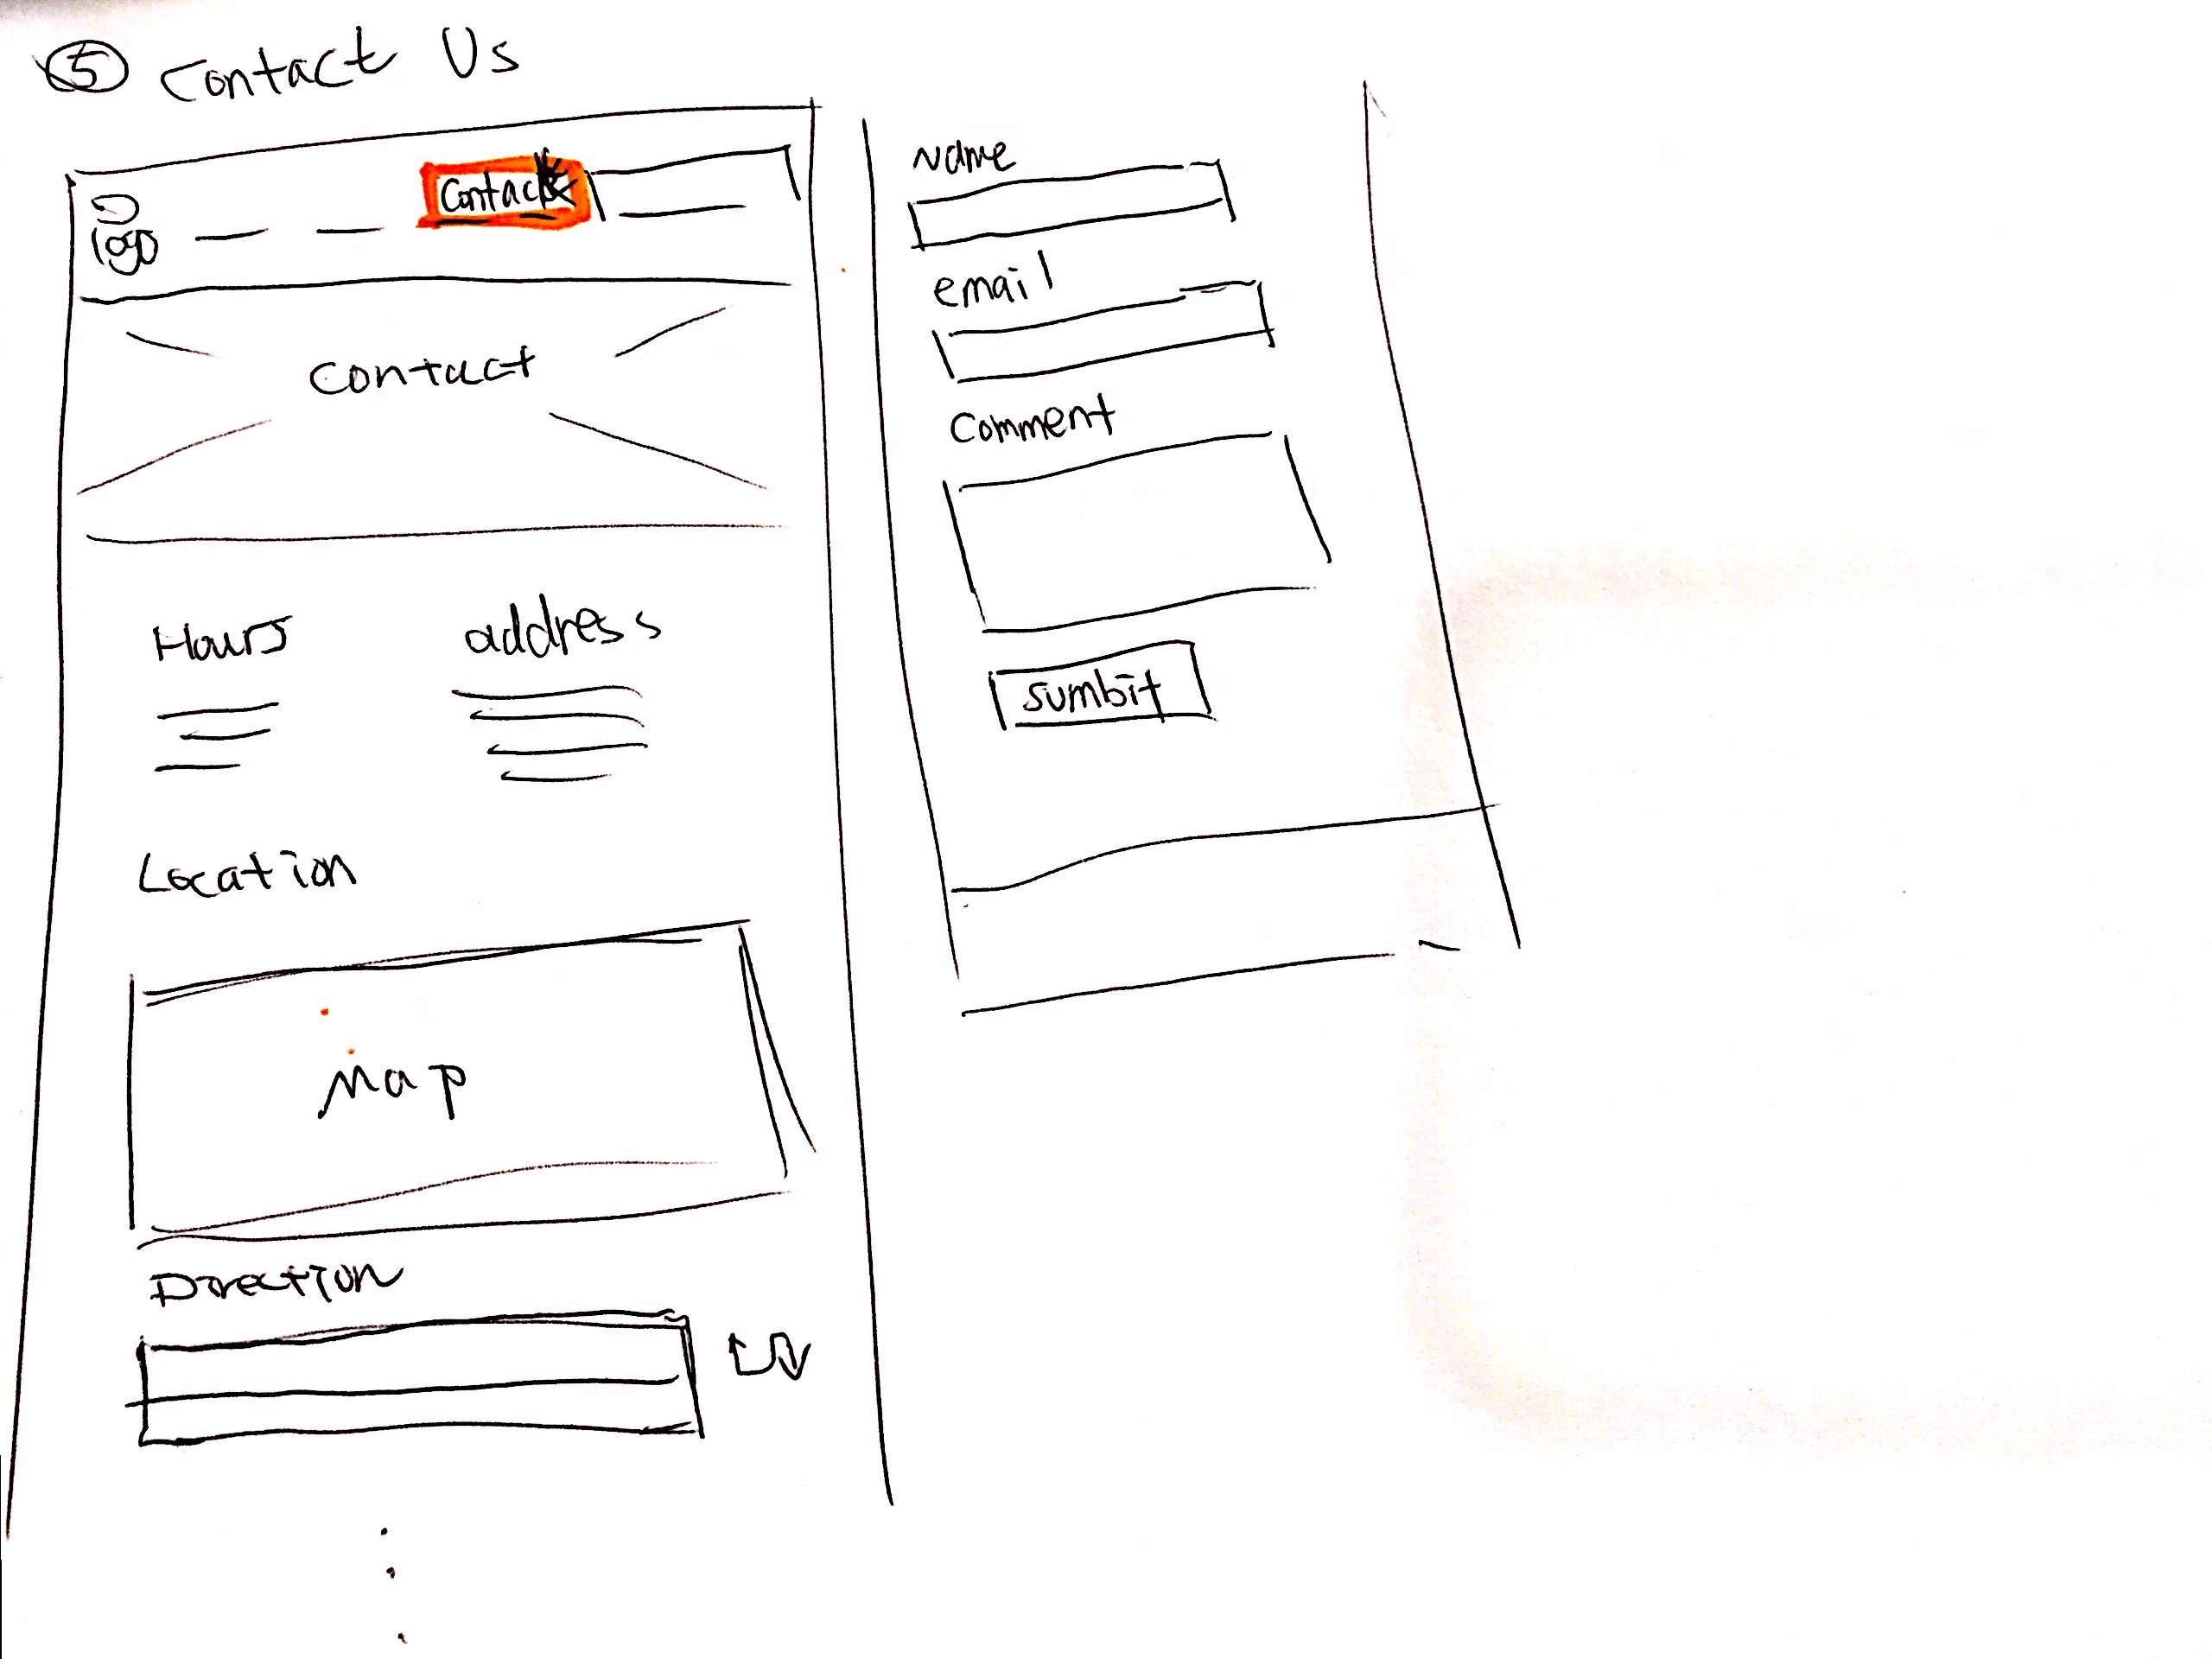 5 Contact Us
logo
Contact
Contact
Hours address
Location
Map
Direction
Name
email
Comment
sumbit